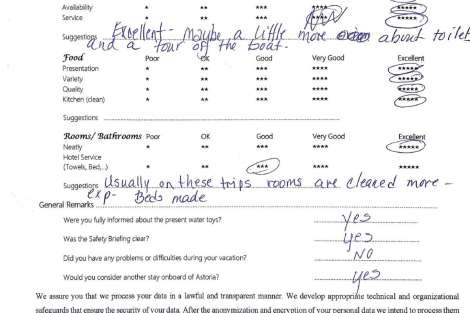 Availability * ** *** **** *****
Service * ** *** **** *****
Suggestions Excellent - Maybe a little more about toilet
and a tour off the boat.
Food Poor OK Good Very Good Excellent
Presentation * ** *** **** *****
Variety * ** *** **** *****
Quality * ** *** **** *****
Kitchen (clean) * ** *** **** *****
Suggestions
Rooms/Bathrooms Poor OK Good Very Good Excellent
Neatly * ** *** **** *****
Hotel Service
(Towels, Bed,..) * ** *** **** *****
Suggestions Usually on these trips rooms are cleaned more -
exp- Beds made
General Remarks
Were you fully informed about the present water toys? yes
Was the Safety Briefing clear? yes
Did you have any problems or difficulties during your vacation? NO
Would you consider another stay onboard of Astoria? yes
We assure you that we process your data in a lawful and transparent manner. We develop appropriate technical and organizational
safeguards that ensure the security of your data. After the anonymization and encryption of your personal data we intend to process them